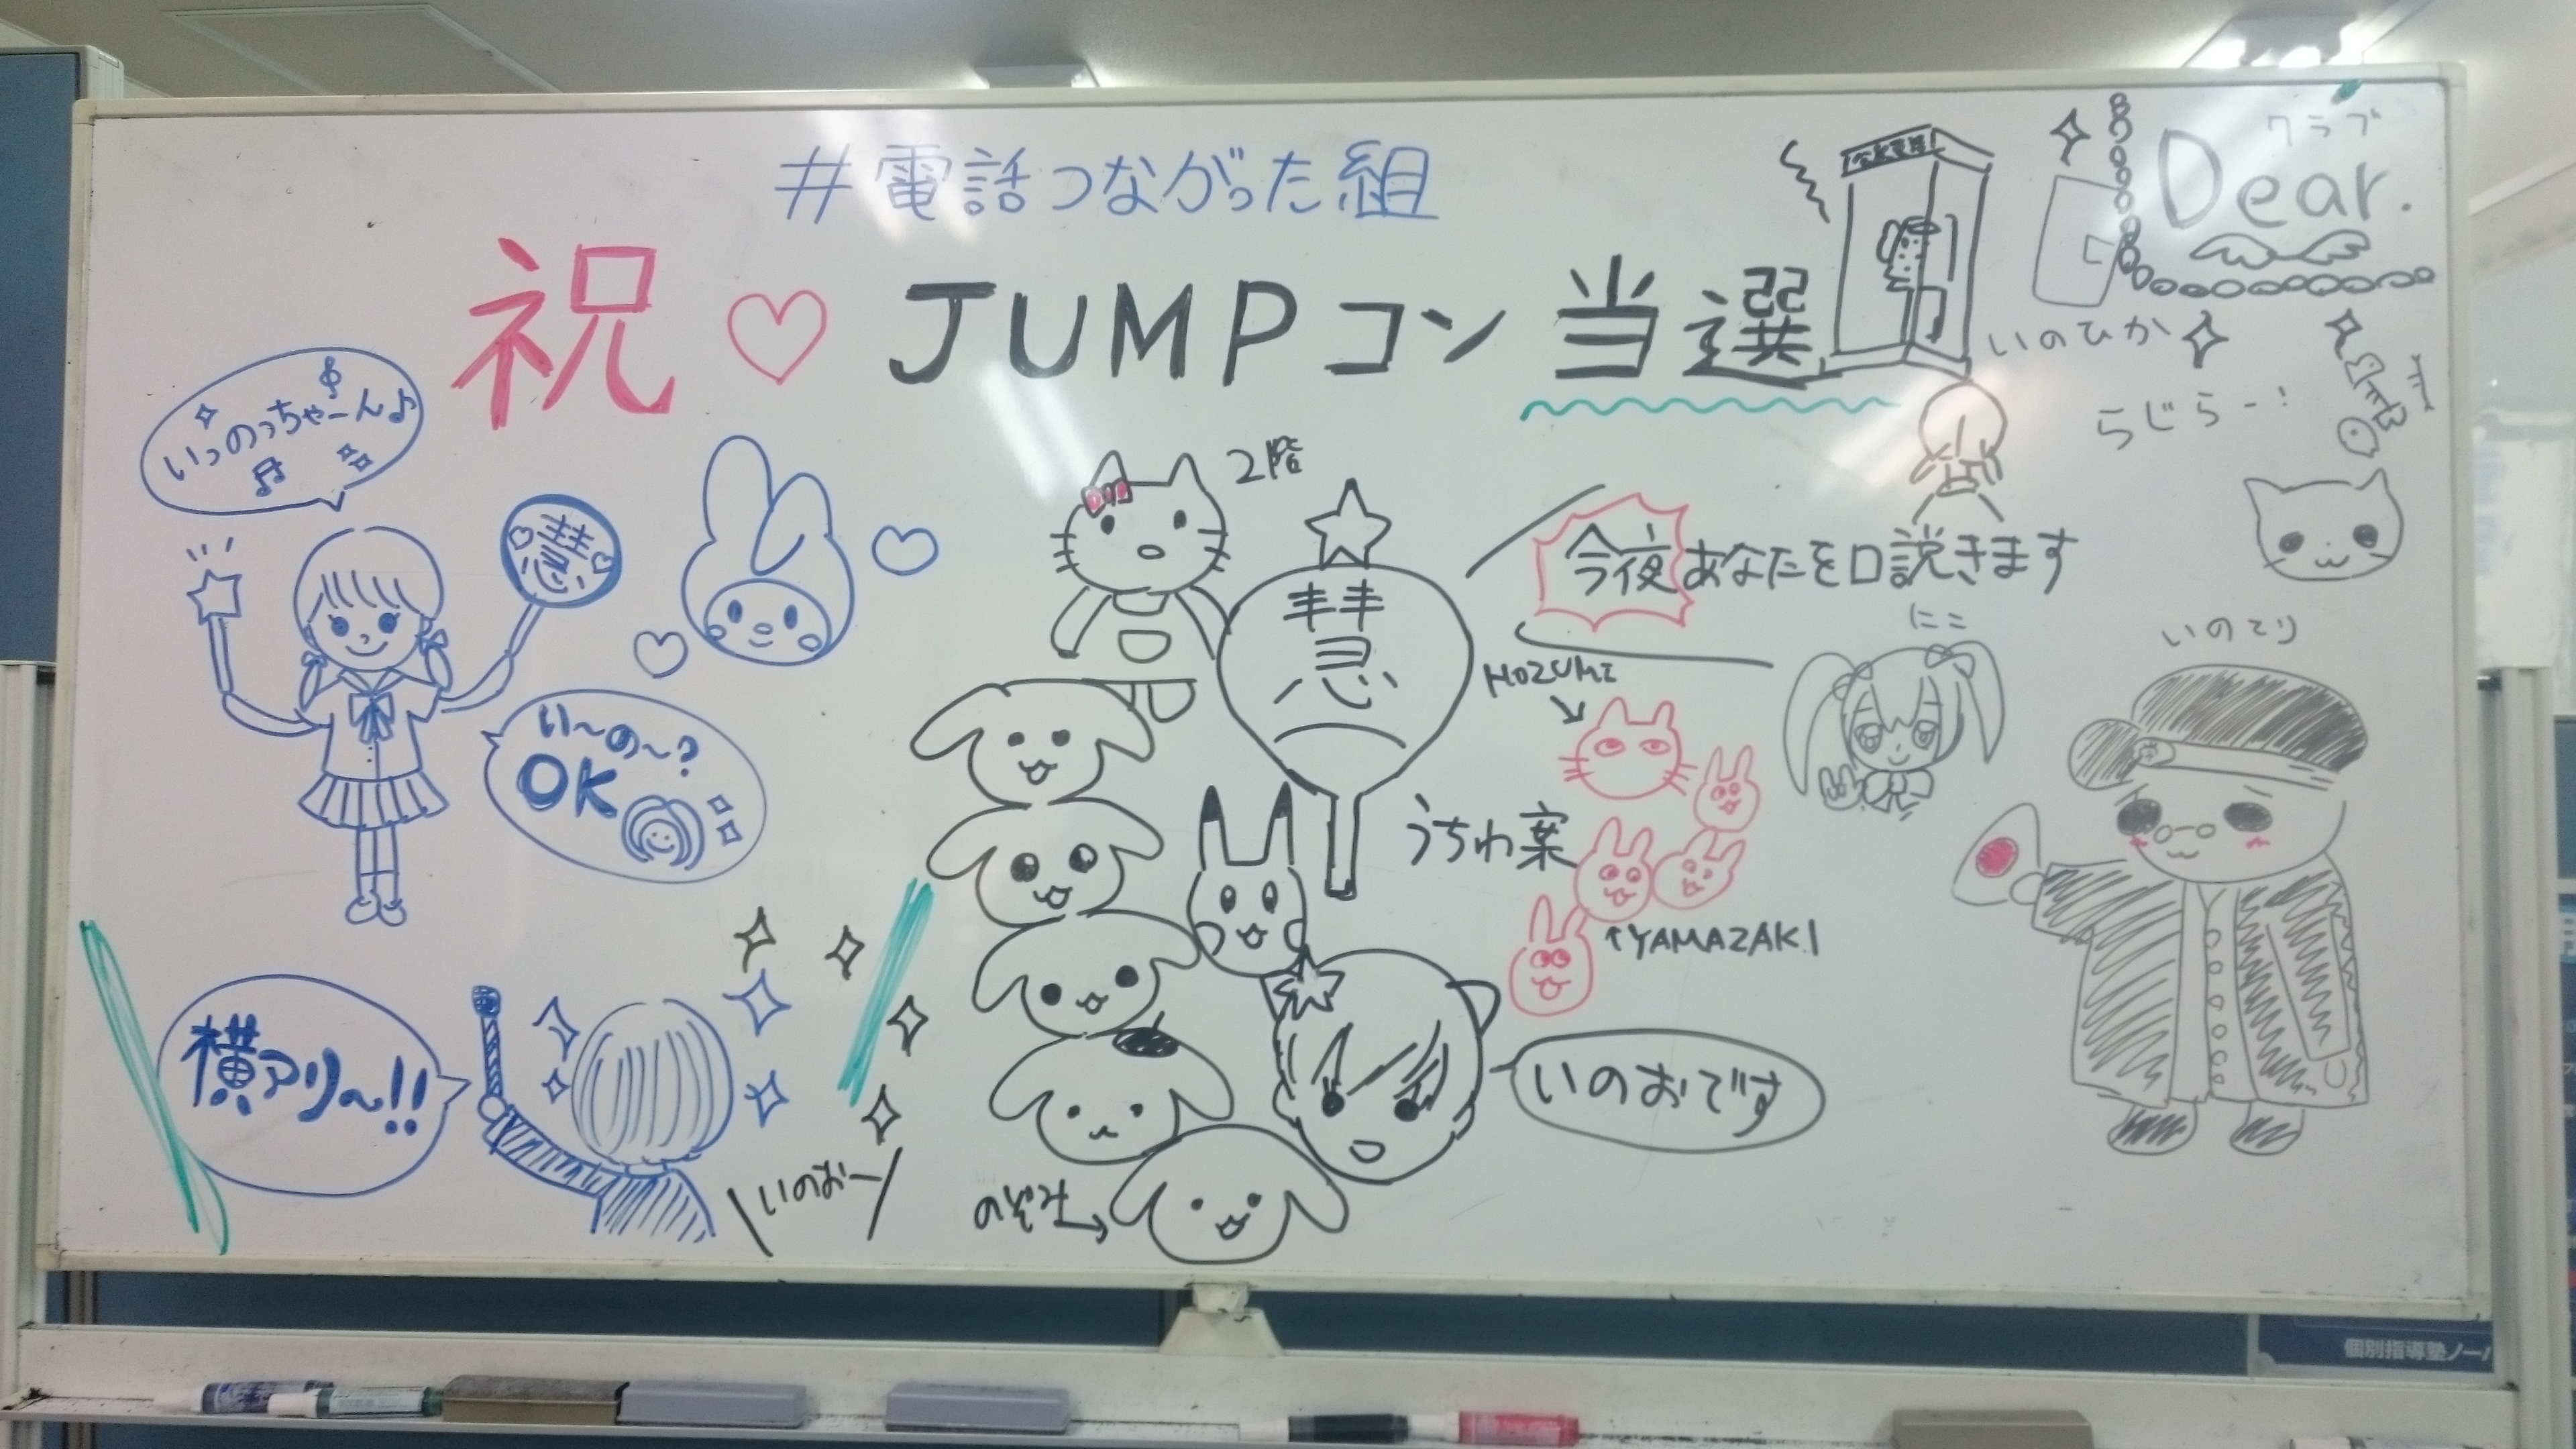 #電話つながった組
祝♡JUMPコン当選
クラブ
Dear.
いのひか
らじらー!
いっのっちゃーん♪
慧
い～の～?
OK
2階
慧
今夜あなたを口説きます
にこ
いのてり
HOZUMI
うちわ案
↑YAMAZAKI
横アリ～!!
いのおー
のぞみ→
いのおです
個別指導塾ノーバ